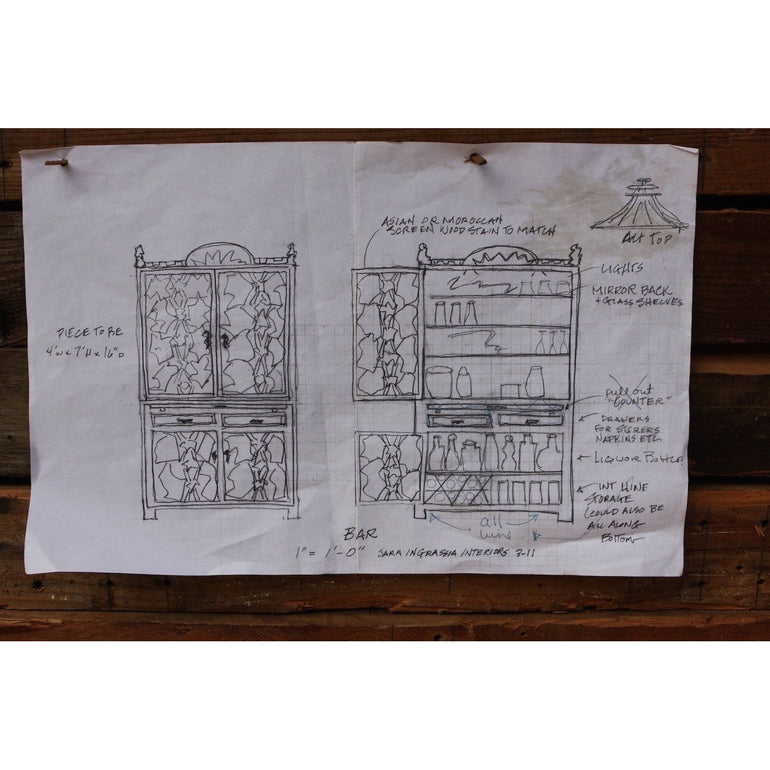 ASIAN OR MOROCCAN
SCREEN WOOD STAIN TO MATCH
ALT TOP
LIGHTS
MIRROR BACK
+ GLASS SHELVES
PIECE TO BE
4'W x 7'H x 16"D
pull out
"COUNTER"
DRAWERS
FOR STIRERS
NAPKINS ETC
LIQUOR BOTTLE
INT WINE
STORAGE
(COULD ALSO BE
ALL ALONG
BOTTOM
all
wine
BAR
1" = 1'-0" SARA INGRASSIA INTERIORS 3-11